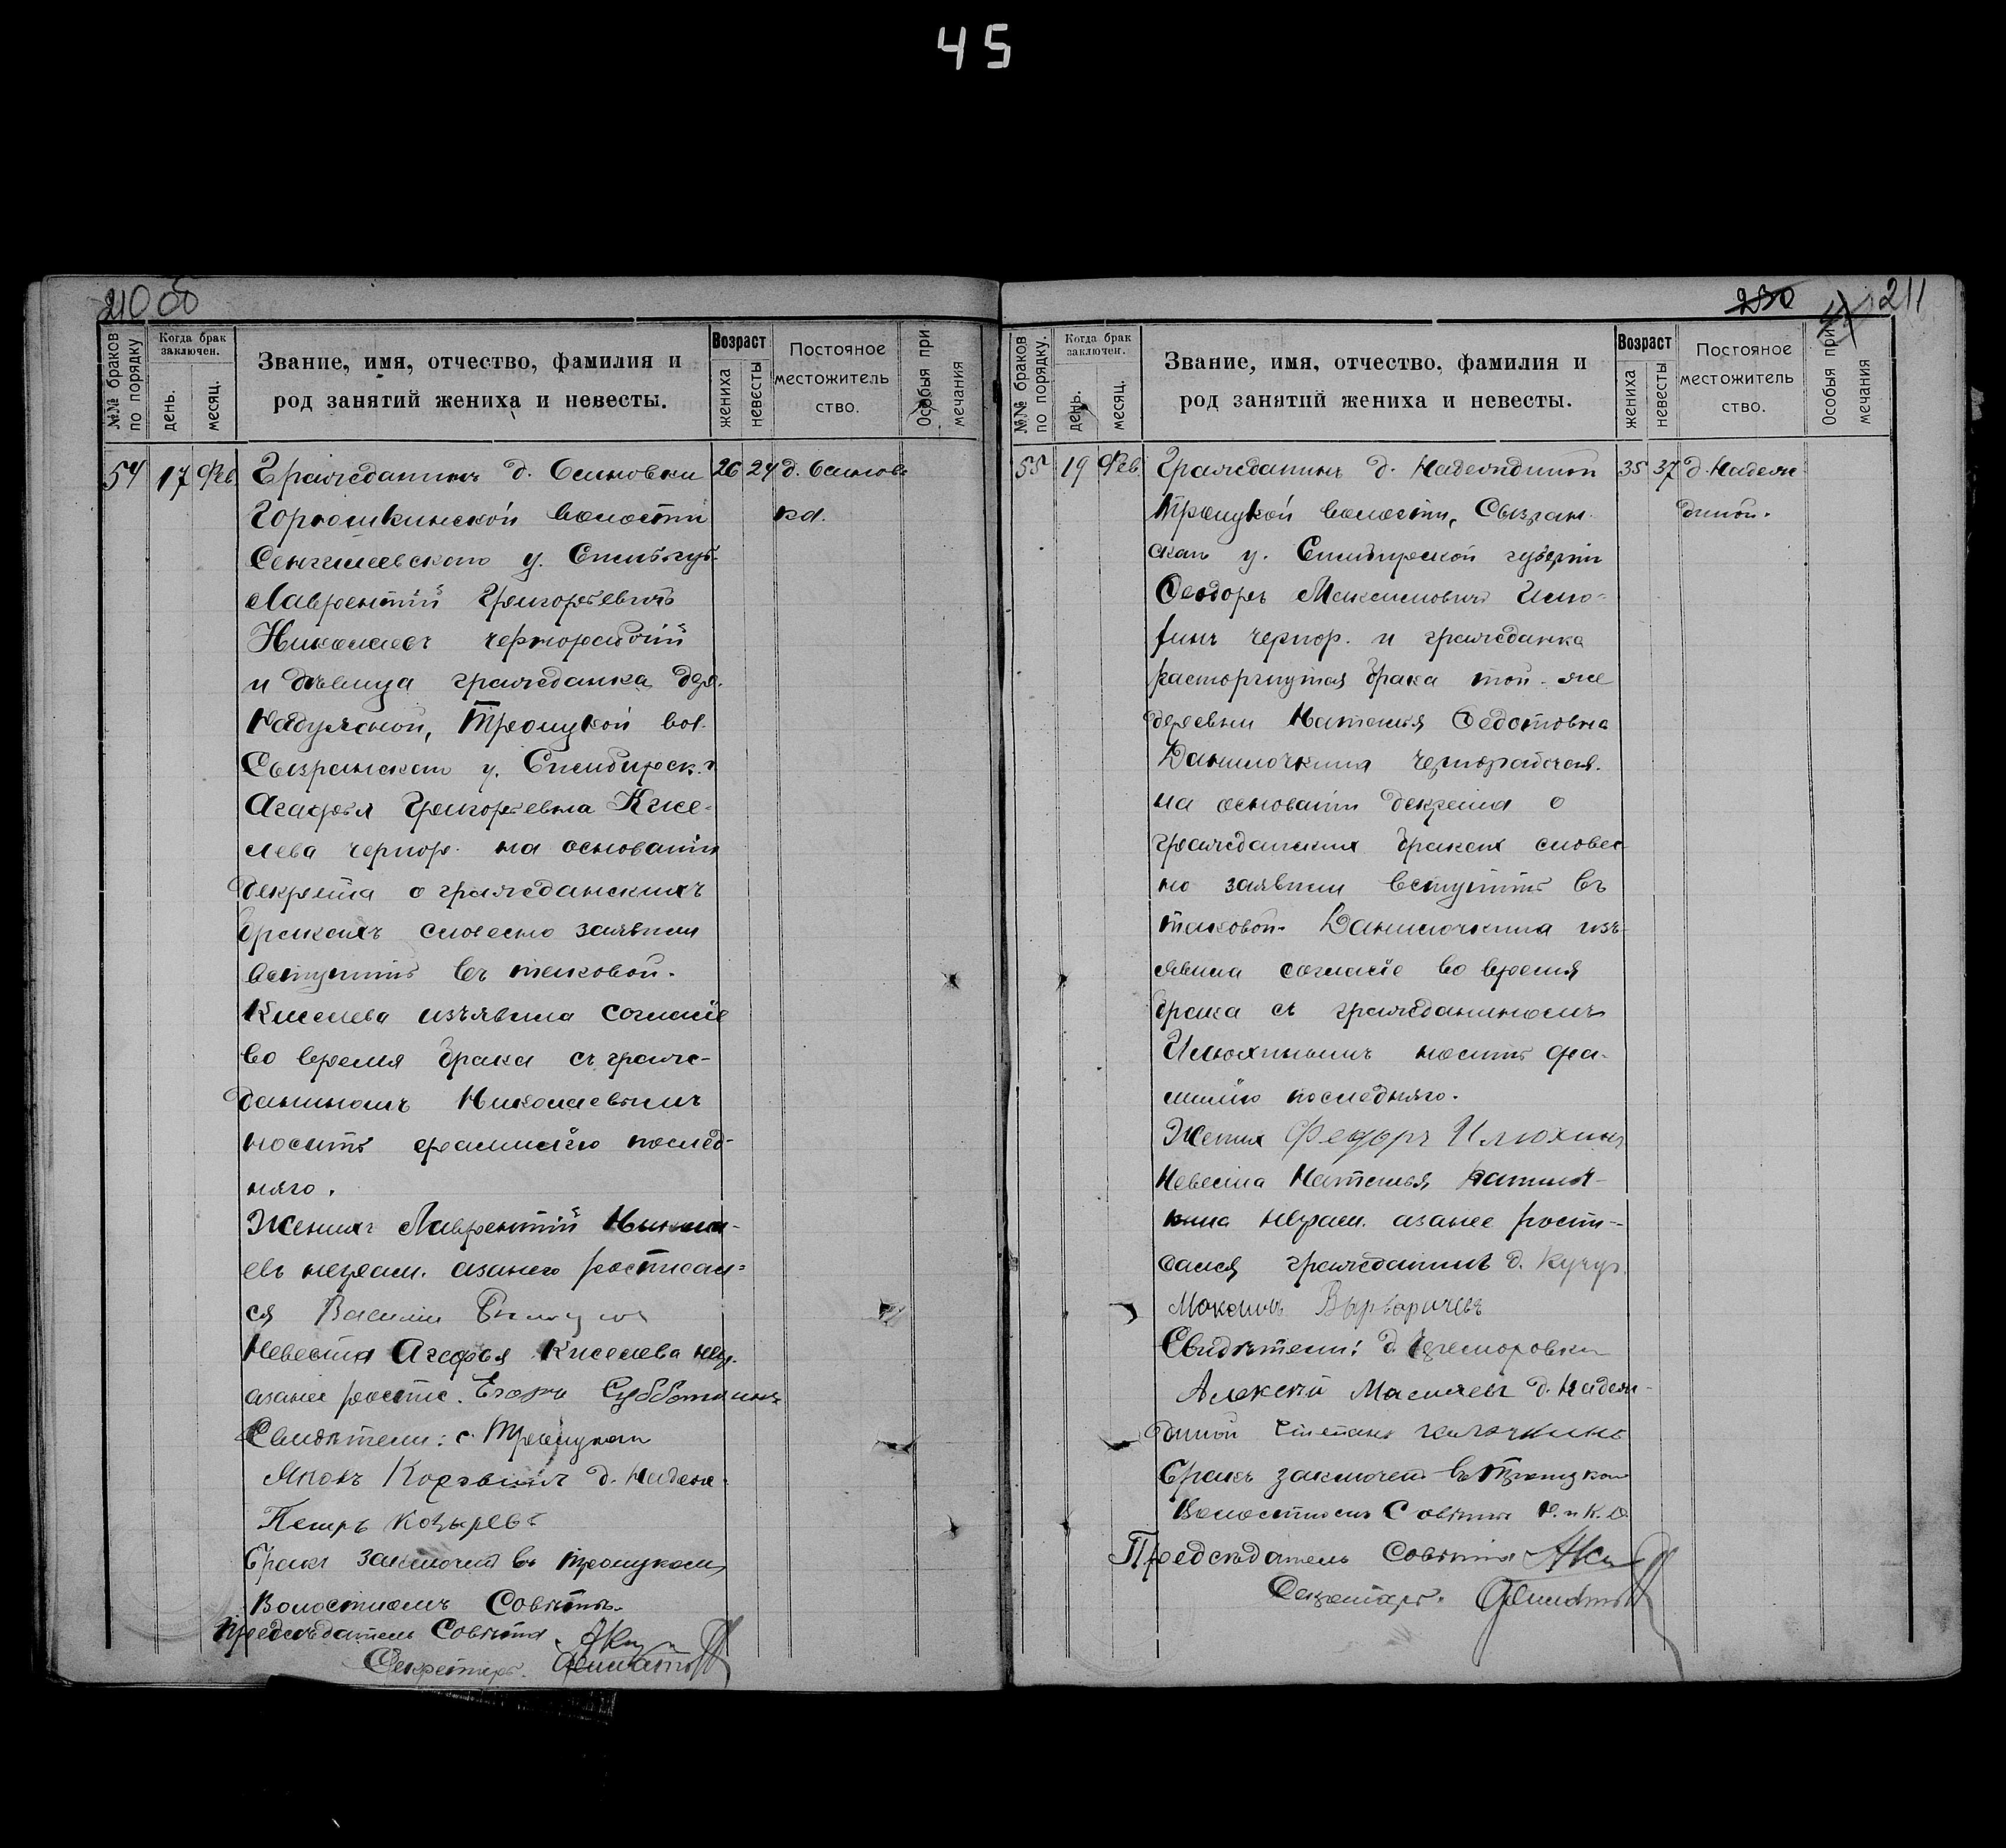 45
210
№№ браков по порядку
Когда брак заключен.
день.
месяц.
Звание, имя, отчество, фамилия и
род занятий жениха и невесты.
Возраст
жениха
невесты
Постояное
местожитель
ство.
Особыя при
мечания
54 17 Фев. Гражданинъ д. Осиновки 26 24 д. Осинов
Горюшкинской волости ка.
Сенгилеевскаго у. Симб. губ.
Лаврентій Григорьевичъ
Николаевъ чернорабочій
и дѣвица гражданка дер.
Троицкой вол.
Сызранскаго у. Симбирск. г.
Агафья Григорьевна Кисе-
лева чернор. на основаніи
декрета о гражданскихъ
бракахъ словесно заявили
вступить въ таковой.
Киселева изъявила согласіе
во время брака съ граж-
даниномъ Николаевымъ
носить фамилію послед-
няго.
Женихъ Лаврентій Никола-
евъ неграм. а за него росписал-
ся Василий
Невеста Агафья Киселева негр.
а за нее роспис. Егоръ Субботинъ
Свидѣтели: с. Троицкаго
Яковъ д. Надеж.
Петръ Козыревъ
Бракъ заключенъ въ Троицкомъ
Волостномъ Совѣтѣ.
Председатель Совѣта
Секретарь.
230
211
№№ браков по порядку.
Когда брак заключен.
день.
месяц.
Звание, имя, отчество, фамилия и
род занятий жениха и невесты.
Возраст
жениха
невесты
Постояное
местожитель
ство.
Особыя при
мечания
55 19 Фев. Гражданинъ д. Надеждиной 35 37 д. Надеж
Троицкой волости, Сызран- диной.
скаго у. Симбирской губерніи
Феодоръ Максимовичъ Илю-
хинъ чернор. и гражданка
расторгнутая брака той-же
деревни Наталья Федотовна
Данилочкина чернорабочая.
на основаніи декрета о
гражданскихъ бракахъ словес-
но заявили вступить въ
таковой. Данилочкина изъ-
явила согласіе во время
брака съ гражданиномъ
Илюхинымъ носить фа-
милію последняго.
Женихъ Федоръ Илюхинъ
Невеста Наталья
кина неграм. а за нее роспи-
сался гражданинъ д. Кучуг.
Максимъ
Свидѣтели: д.
Алексѣй д. Надеж-
диной Степанъ
Бракъ заключенъ въ Троицком
Волостномъ Совѣтѣ Р. и К. Д.
Председатель Совѣта
Секретарь.